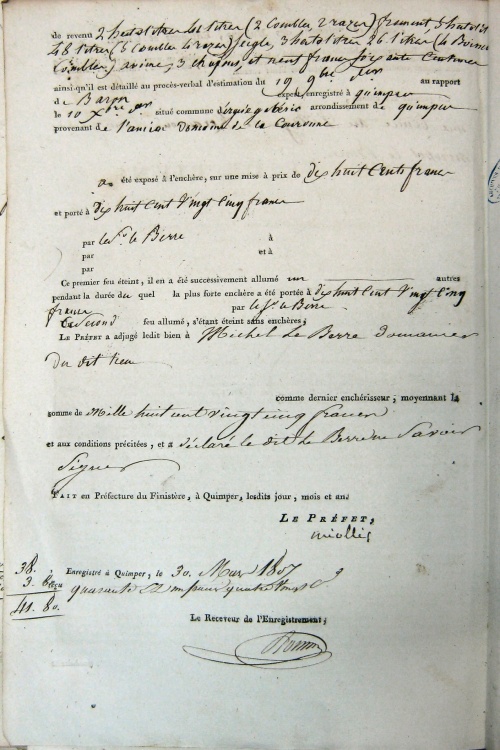 de revenu 2 hectolitres les litres (2 Combles 2 razes) froment 5 hectol
48 litres (5 Combles 4 razes) seigle, 3 hectolitres 26 litres (4
Combles) avoine, 3 chapons, et neuf francs soixante centimes
ainsi qu'il est détaillé au procès-verbal d'estimation du 19 9bre d'er au rapport
de Baron expert, enregistré à quimper
le 10 Xbre d'er situé commune d'ergué gaberic arrondissement de quimper
provenant de l'ancien Domaine de la Couronne
a été exposé à l'enchère, sur une mise à prix de dix huit Cents francs
et porté à dix huit Cent Vingt Cinq francs
par led. Sr. le Berre à
par et à
par
Ce premier feu éteint, il en a été successivement allumé un autres
pendant la durée du quel la plus forte enchère a été portée à dix huit Cent Vingt Cinq
francs par le Sr. le Berre
Le second feu allumé, s'étant éteint sans enchères;
Le Préfet a adjugé ledit bien à Michel Le Berre domanier
du dit lieu
comme dernier enchérisseur; moyennant la
somme de Mille huit cent vingt cinq francs
et aux conditions précitées, et a déclaré le dit Le Berre ne savoir
Signer
Fait en Préfecture du Finistère, à Quimper, lesdits jour, mois et an.
Le Préfet,
miollis
38.
Enregistré à Quimper, le 30. Mars 1807
3. 80
quarante Un francs quatre Vingt Cs
41. 80.
Le Receveur de l'Enregistrement;